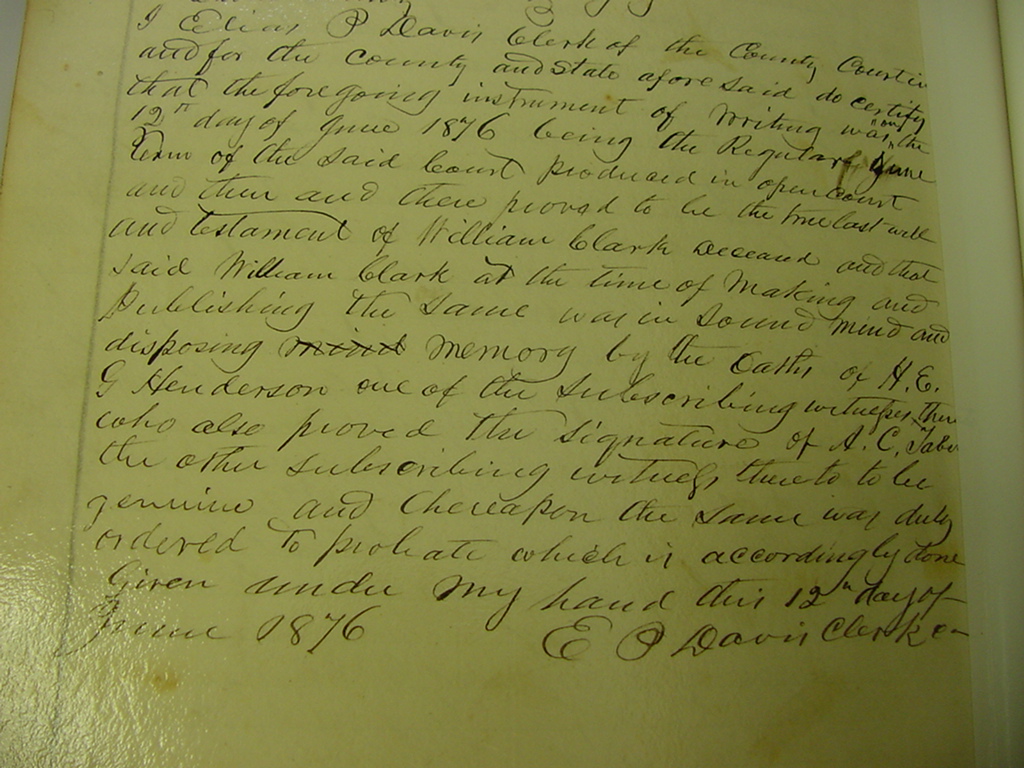 I Elias P Davis Clerk of the County Court in
and for the County and State aforesaid do certify
that the foregoing instrument of Writing was on the
12th day of June 1876 being the Regular June
term of the said Court produced in open Court
and then and there proved to be the true last will
and testament of William Clark deceased and that
said William Clark at the time of Making and
Publishing the Same was in Sound Mind and
disposing Memory by the Oaths of A. E.
G Henderson one of the Subscribing witnesses there
who also proved the signature of A. C.
the other subscribing witness thereto to be
genuine and thereupon the same was duly
ordered to probate which is accordingly done
Given under My hand this 12th day of
June 1876
E P Davis Clerk